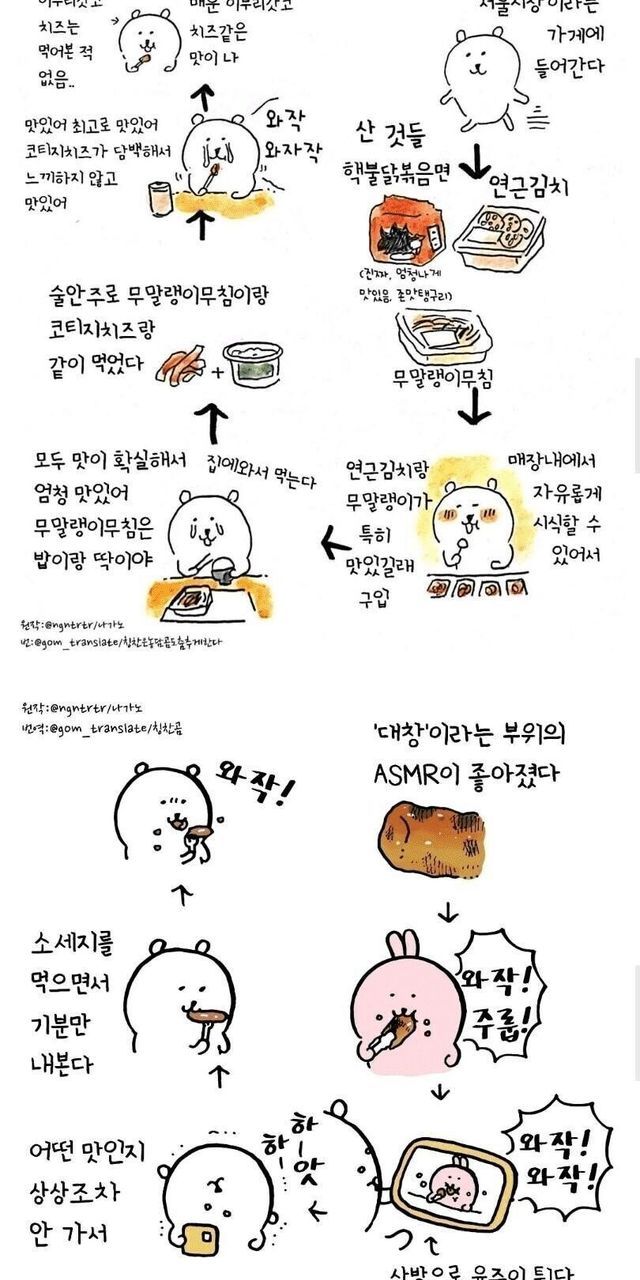 서울시장이라는
가게에
들어간다
산 것들
핵불닭볶음면
(진짜, 엄청나게
맛있음, 존맛탱구리)
연근김치
무말랭이무침
매장내에서
자유롭게
시식할 수
있어서
연근김치랑
무말랭이가
특히
맛있길래
구입
집에와서 먹는다
모두 맛이 확실해서
엄청 맛있어
무말랭이무침은
밥이랑 딱이야
술안주로 무말랭이무침이랑
코티지치즈랑
같이 먹었다
+
와작
와자작
맛있어 최고로 맛있어
코티지치즈가 담백해서
느끼하지 않고
맛있어
매운 이부리갓코
치즈같은
맛이 나
이부리갓코
치즈는
먹어본 적
없음..
원작:@ngntrtr/나가노
번:@gom_translate/칭찬은농담곰도춤추게한다
원작:@ngntrtr/나가노
번역:@gom_translate/칭찬곰
'대창'이라는 부위의
ASMR이 좋아졌다
와작!
주룹!
와작!
와작!
사방으로 육즙이 튄다
하-
하-
앗
어떤 맛인지
상상조차
안 가서
소세지를
먹으면서
기분만
내본다
와작!